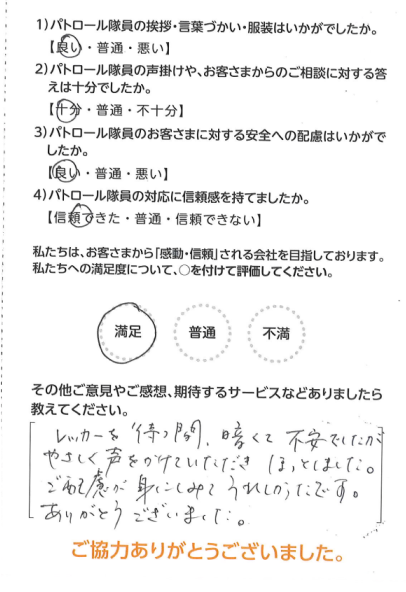 1)パトロール隊員の挨拶・言葉づかい・服装はいかがでしたか。
【良い・普通・悪い】
2)パトロール隊員の声掛けや、お客さまからのご相談に対する答
えは十分でしたか。
【十分・普通・不十分】
3)パトロール隊員のお客さまに対する安全への配慮はいかがで
したか。
【良い・普通・悪い】
4)パトロール隊員の対応に信頼感を持てましたか。
【信頼できた・普通・信頼できない】
私たちは、お客さまから「感動・信頼」される会社を目指しております。
私たちへの満足度について、○を付けて評価してください。
満足 普通 不満
その他ご意見やご感想、期待するサービスなどありましたら
教えてください。
レッカーを待つ間、暗くて不安でしたが
やさしく声をかけていただきほっとしました。
ご配慮が身にしみてうれしかったです。
ありがとうございました。
ご協力ありがとうございました。